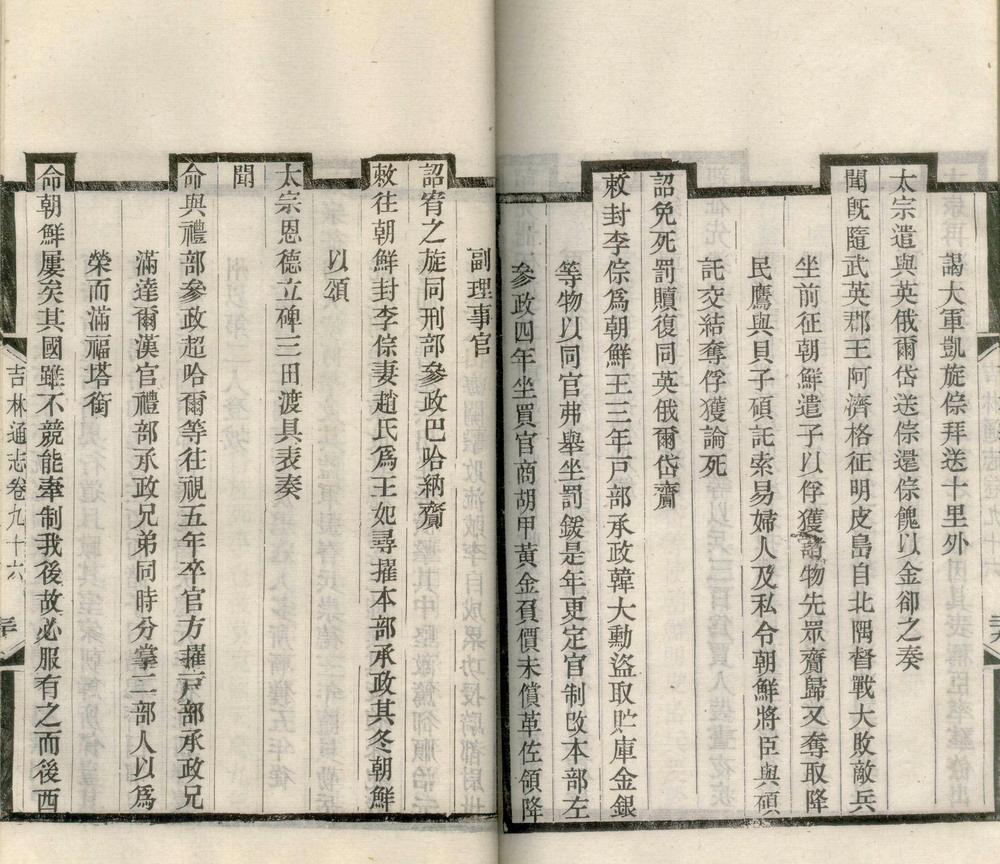 謁大軍凱旋倧拜送十里外
太宗遣與英俄爾岱送倧還倧餽以金卻之奏
聞旣隨武英郡王阿濟格征明皮島自北隅督戰大敗敵兵
坐前征朝鮮遣子以俘獲諸物先眾齎歸又奪取降
民鷹與貝子碩託索易婦人及私令朝鮮將臣與碩
託交結奪俘獲論死
詔免死罰贖復同英俄爾岱齎
敕封李倧爲朝鮮王三年戸部承政韓大勳盜取貯庫金銀
等物以同官弗舉坐罰鍰是年更定官制改本部左
參政四年坐買官商胡甲黃金負價未償革佐領降
副理事官
詔宥之旋同刑部參政巴哈納齎
敕往朝鮮封李倧妻趙氏爲王妃尋擢本部承政其冬朝鮮
以頌
太宗恩德立碑三田渡具表奏
聞
命與禮部參政超哈爾等往視五年卒官方擢戸部承政兄
滿達爾漢官禮部承政兄弟同時分掌二部人以爲
榮而滿福塔銜
命朝鮮屢矣其國雖不競能牽制我後故必服有之而後酉
吉林通志卷九十六